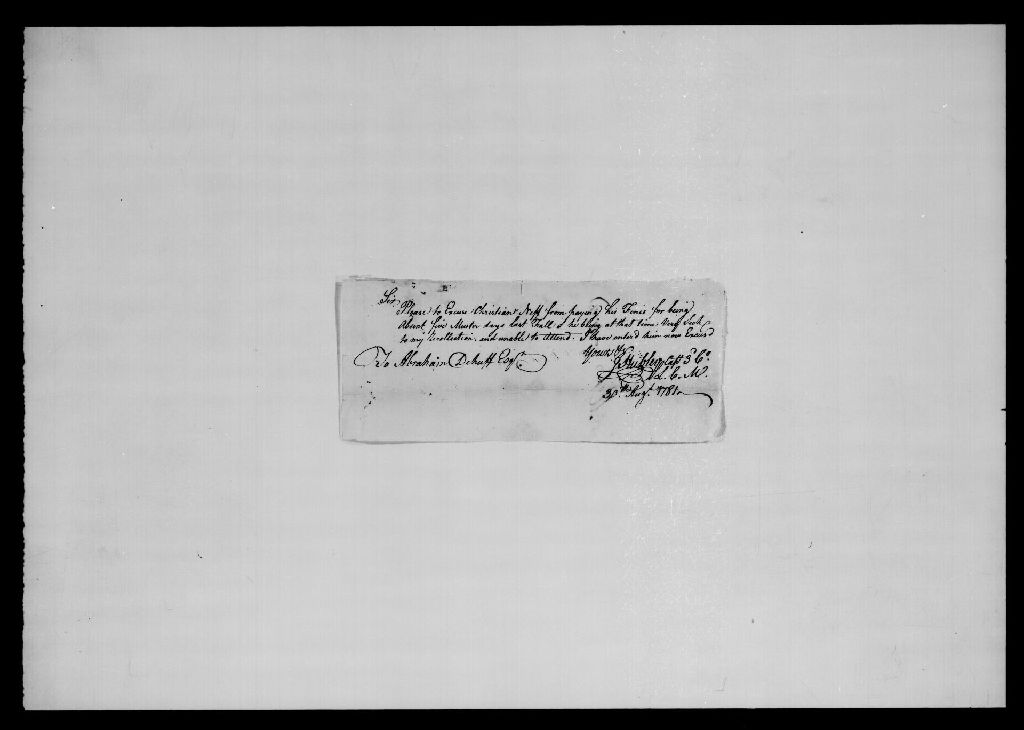 Sir,
Please to Excuse Christian Neff from paying his Fines for being
Absent five Muster days last Fall, he being at that time Very Sick
to my Recollection, and unable to Attend. I have enter'd them now Excus'd
Yours &c
To Abraham Dehuff Esqr. Capt 3d Co.
L. C. M.
30th Augt. 1781